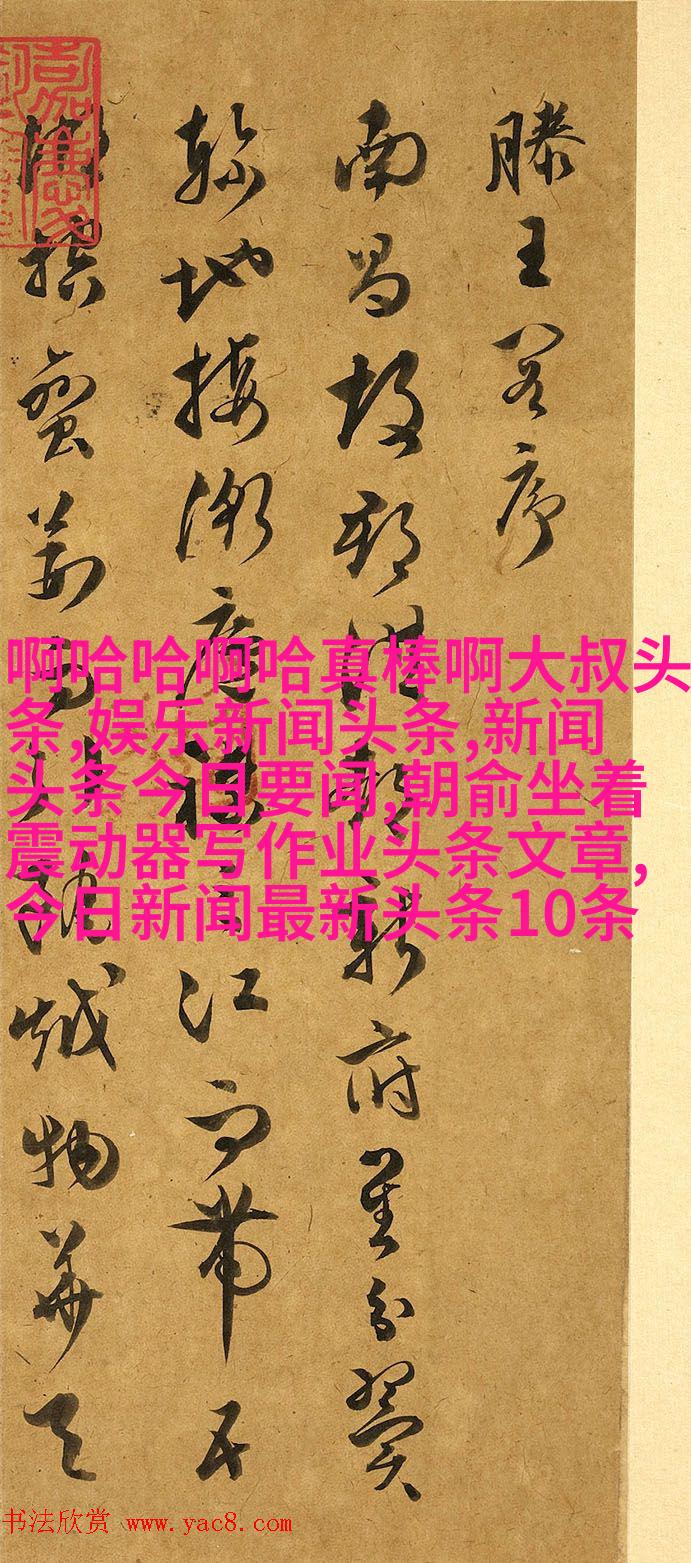 滕王閣序
南昌故郡洪都新府星分翼
軫地接衡廬襟三江而帶五
湖控蠻荊而引甌越物華天
啊哈哈啊哈真棒啊大叔头
条,娱乐新闻头条,新闻
头条今日要闻,朝俞坐着
震动器写作业头条文章,
今日新闻最新头条10条
书法欣赏 www.yac8.com